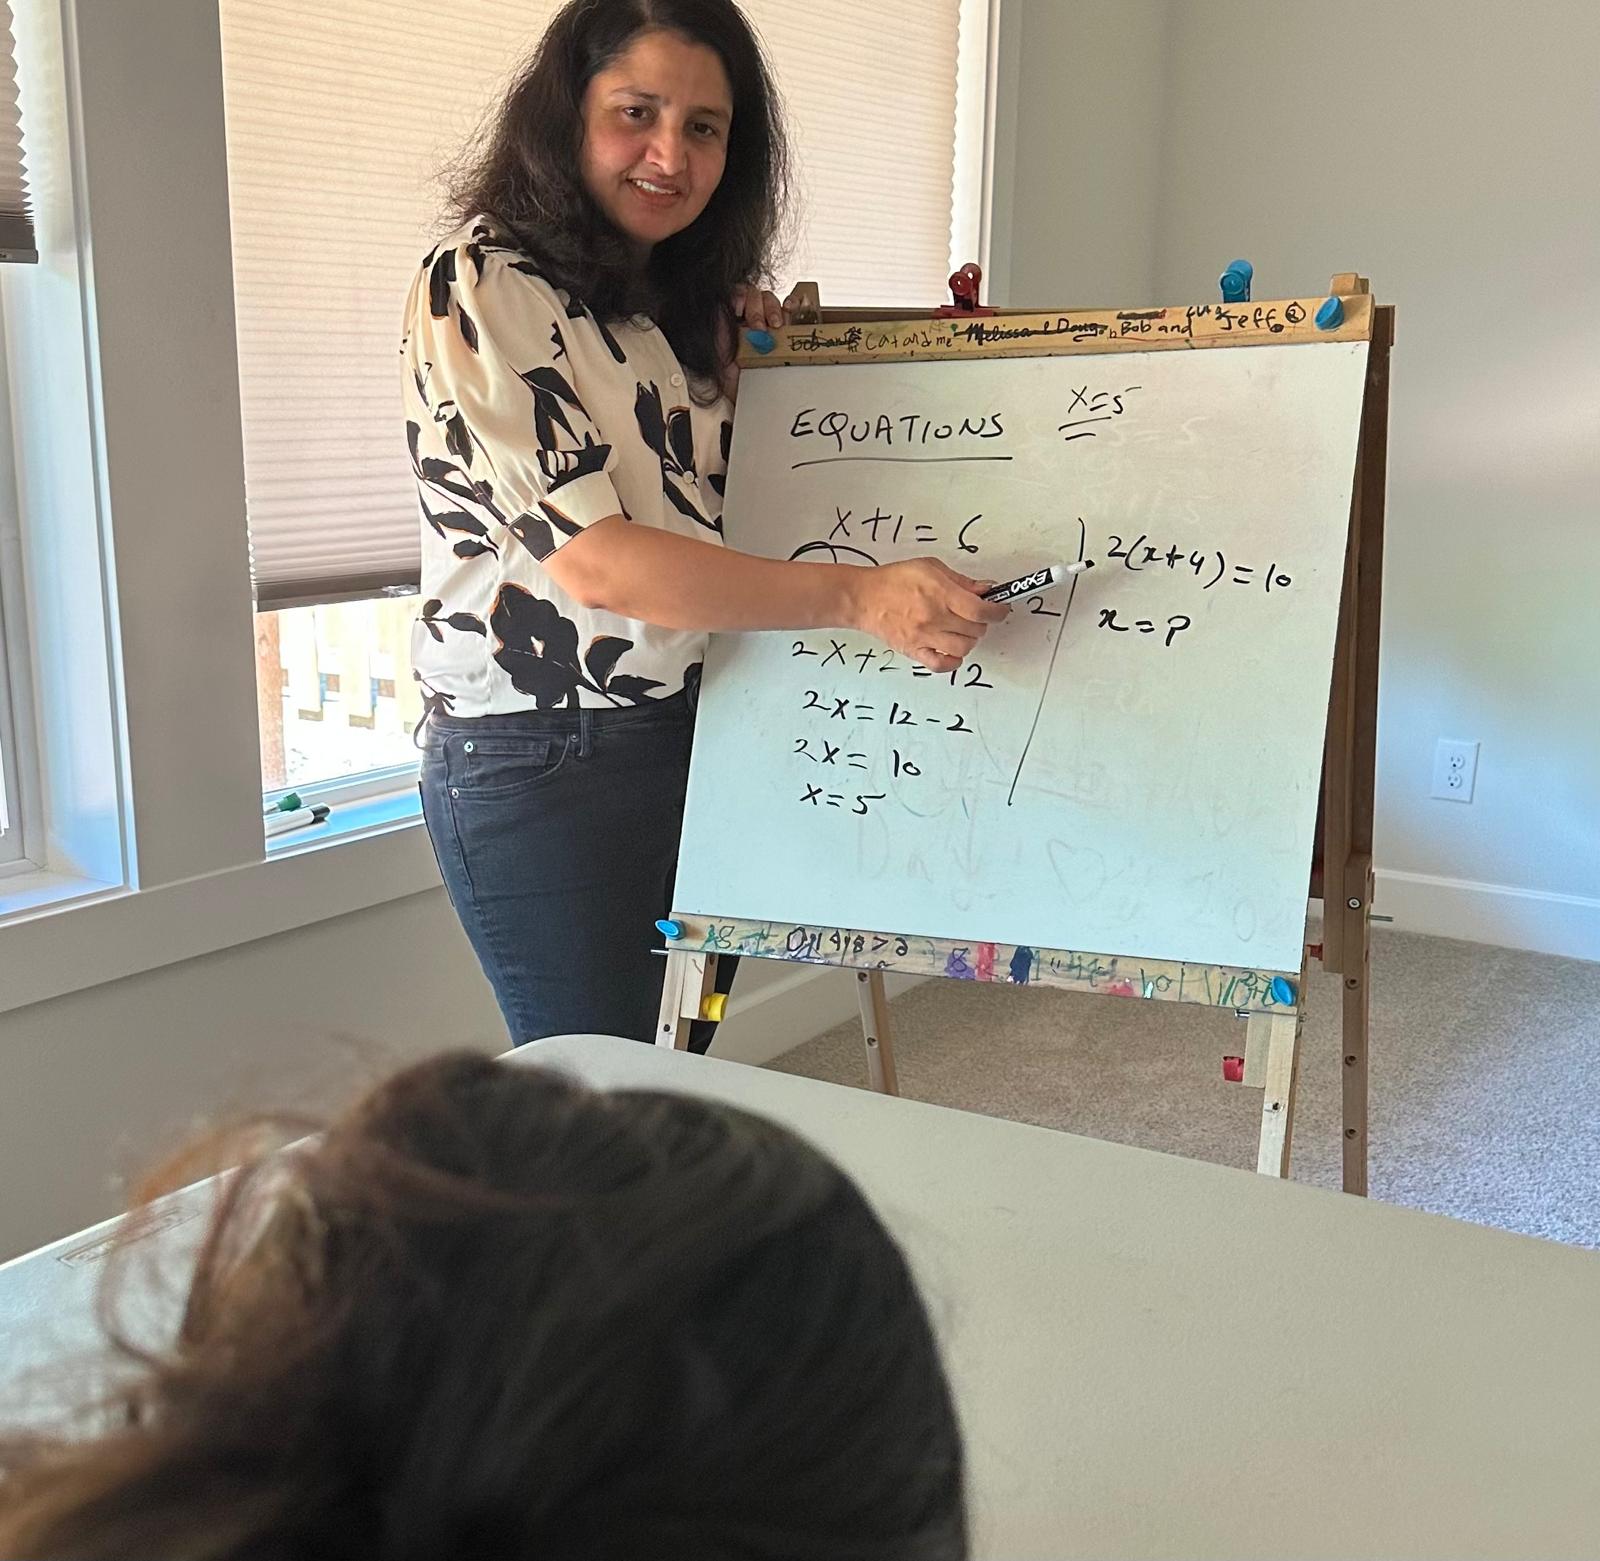 Cat and me Melissa & Doug Bob and Jeff
EQUATIONS
x=5
x+1=6
2
2x+2=12
2x=12-2
2x=10
x=5
2(x+4)=10
x=?
EXPO